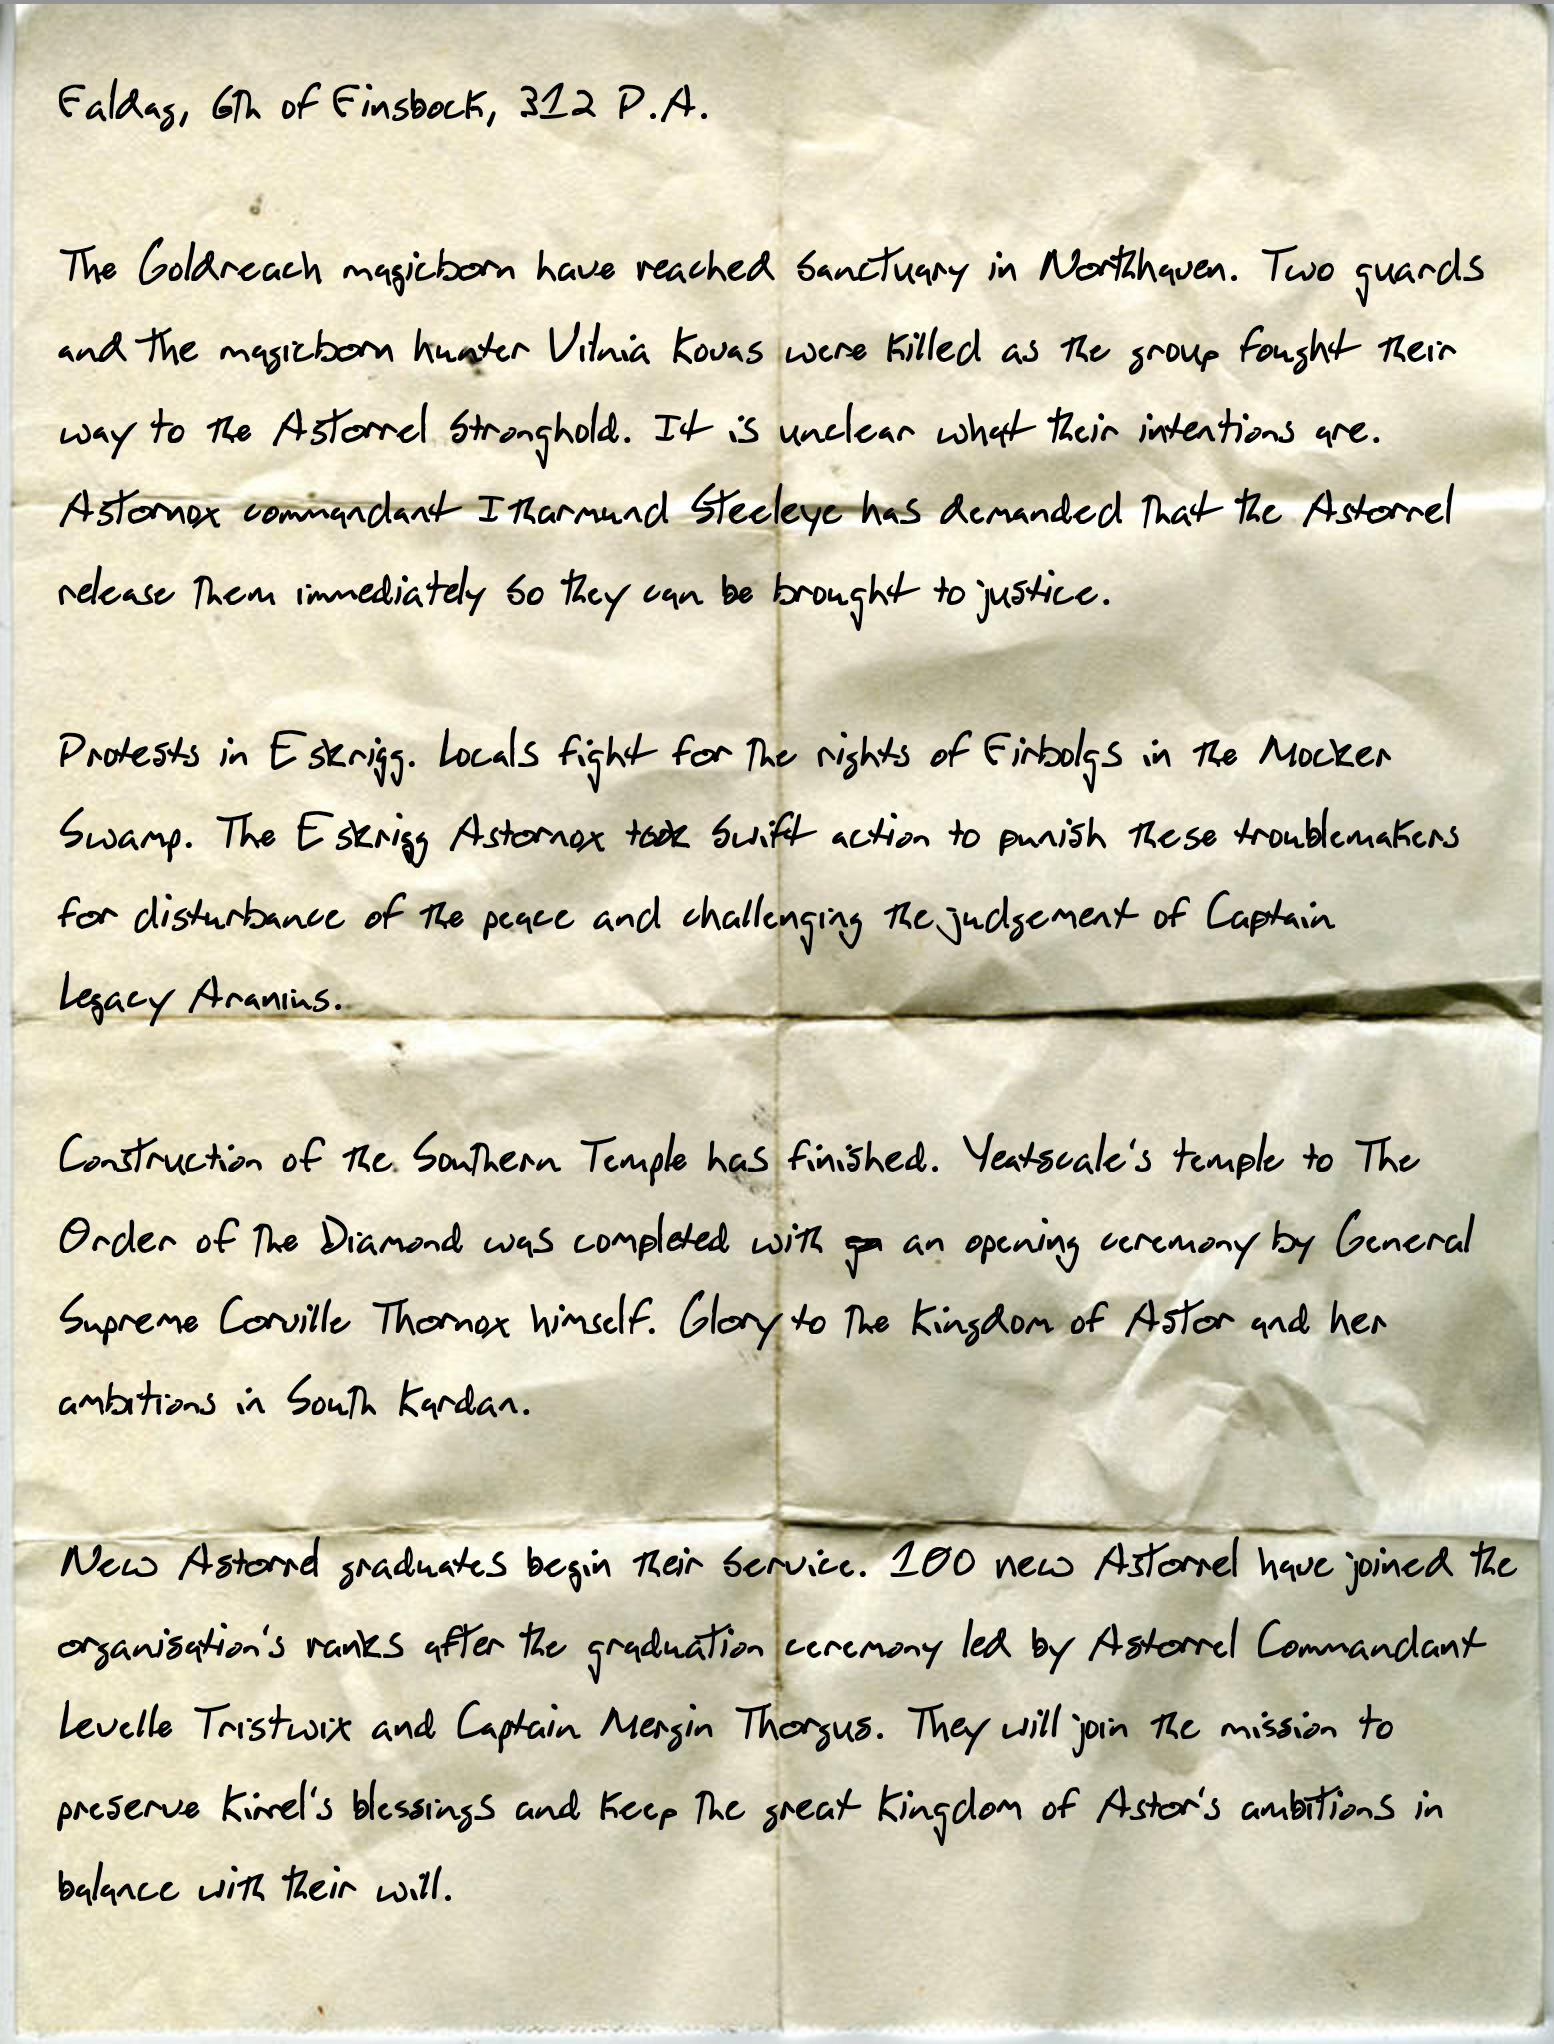 Faldag, 6th of Finsbock, 312 P.A.
The Goldreach magicborn have reached sanctuary in Northhaven. Two guards
and the magicborn hunter Vilnia Kovas were killed as the group fought their
way to the Astorrel stronghold. It is unclear what their intentions are.
Astornox commandant Itharmund Steeleye has demanded that the Astorrel
release them immediately so they can be brought to justice.
Protests in Eskrigg. Locals fight for the rights of Firbolgs in the Mocker
Swamp. The Eskrigg Astornox took swift action to punish these troublemakers
for disturbance of the peace and challenging the judgement of Captain
Legacy Aranius.
Construction of the Southern Temple has finished. Yeatscale's temple to The
Order of the Diamond was completed with an opening ceremony by General
Supreme Corville Thornox himself. Glory to the Kingdom of Astor and her
ambitions in South Kardan.
New Astorrel graduates begin their service. 100 new Astorrel have joined the
organisation's ranks after the graduation ceremony led by Astorrel Commandant
Levelle Tristwix and Captain Mergin Thorgus. They will join the mission to
preserve Kirrel's blessings and keep the great Kingdom of Astor's ambitions in
balance with their will.